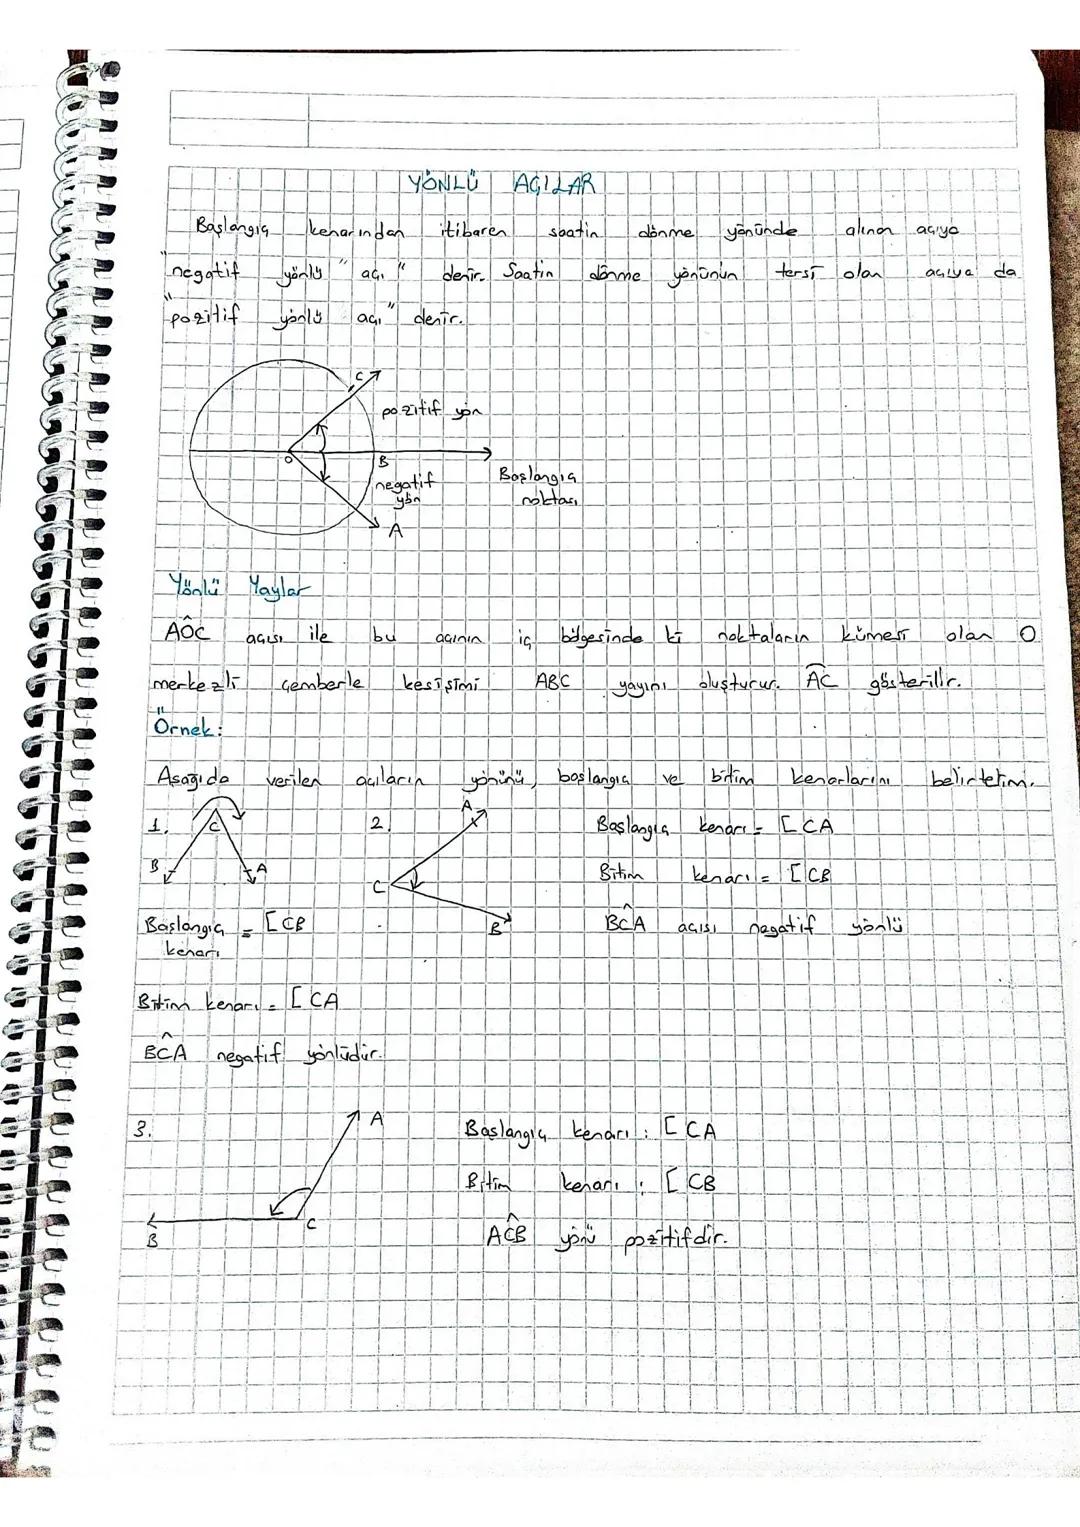 YÖNLÜ AÇILAR
Başlangıç kenarından itibaren saatin dönme yönünde alınan açıya
"negatif yönlü" açı" denir. Saatin dönme yönünün tersi olan açıya da
"pozitif yönlü açı" denir.
C
pozitif yön
O
B
negatif
yön
Başlangıç
noktası
A
Yönlü Yaylar
AÔC açısı ile bu açının iç bölgesinde ki noktaların kümesi olan O
merkezli çemberle kesişimi ABC yayını oluşturur. AC gösterilir.
Örnek:
Aşağıda verilen açıların yönünü, başlangıç ve bitim kenarlarını belirtelim.
1.
C
B
A
2.
A
C
B
Başlangıç kenarı = [CA
Bitim kenarı = [CB
BĈA açısı negatif yönlü
Başlangıç = [CB
kenarı
Bitim kenarı = [CA
BĈA negatif yönlüdür.
3.
A
C
B
Başlangıç kenarı : [CA
Bitim kenarı : [CB
AĈB yönü pozitifdir.